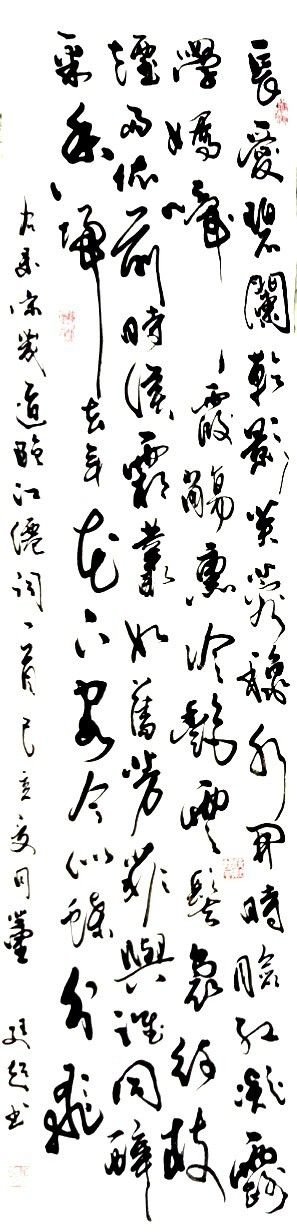 長愛碧闌乾影芙蓉秋水開時臉紅凝露
學嬌啼霞觴熏冷艷雲髻裊纖枝
煙雨依前時候霜叢如舊芳菲與誰同醉
采香歸去年花下客今似蝶分飛
右录宋幾道臨江僊詞一首己亥夏月超书